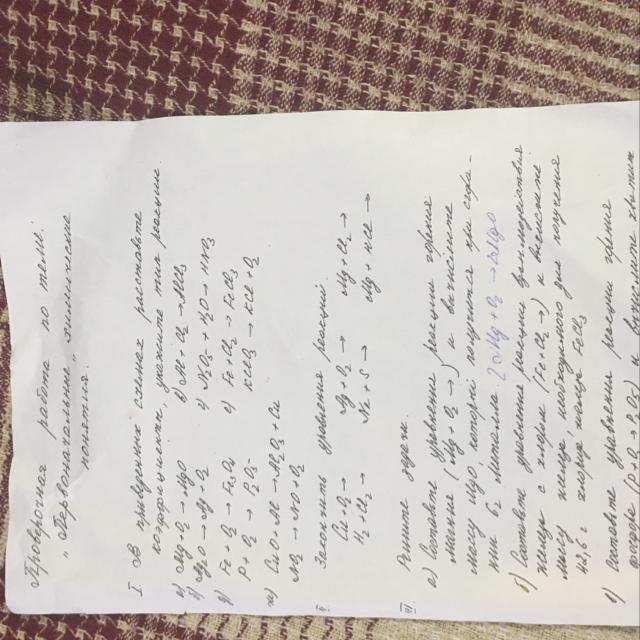 Проверочная работа по теме:
"Первоначальные химические
понятия.
I. В приведённых схемах расставьте
коэффициенты, укажите тип реакции.
а) Mg + O₂ → MgO д) Al + Cl₂ → AlCl₃
б) HgO → Hg + O₂ NO₂ + H₂O → HNO₃
в) Fe + O₂ → Fe₃O₄ е) Fe + Cl₂ → FeCl₃
P + O₂ → P₂O₅ KClO₃ → KCl + O₂
CuO + Al → Al₂O₃ + Cu
N₂ → NO + O₂
II. Закончить уравнения реакций
Cu + O₂ → Mg + O₂ → Mg + Cl₂ →
H₂ + Cl₂ → + S → Mg + HCl →
III. Решите задачи.
а) Составьте уравнение реакции горения
магния (Mg + O₂ →) и вычислите
массу MgO, который получится при
6г металла. 2Mg + O₂ → 2MgO
б) Составьте уравнение реакции взаимодействия
железа с хлором (Fe + Cl₂ →) и вычислите
массу железа, необходимого для получения
г хлорида железа FeCl₃
в) Составьте уравнение реакции горения
и вычислите